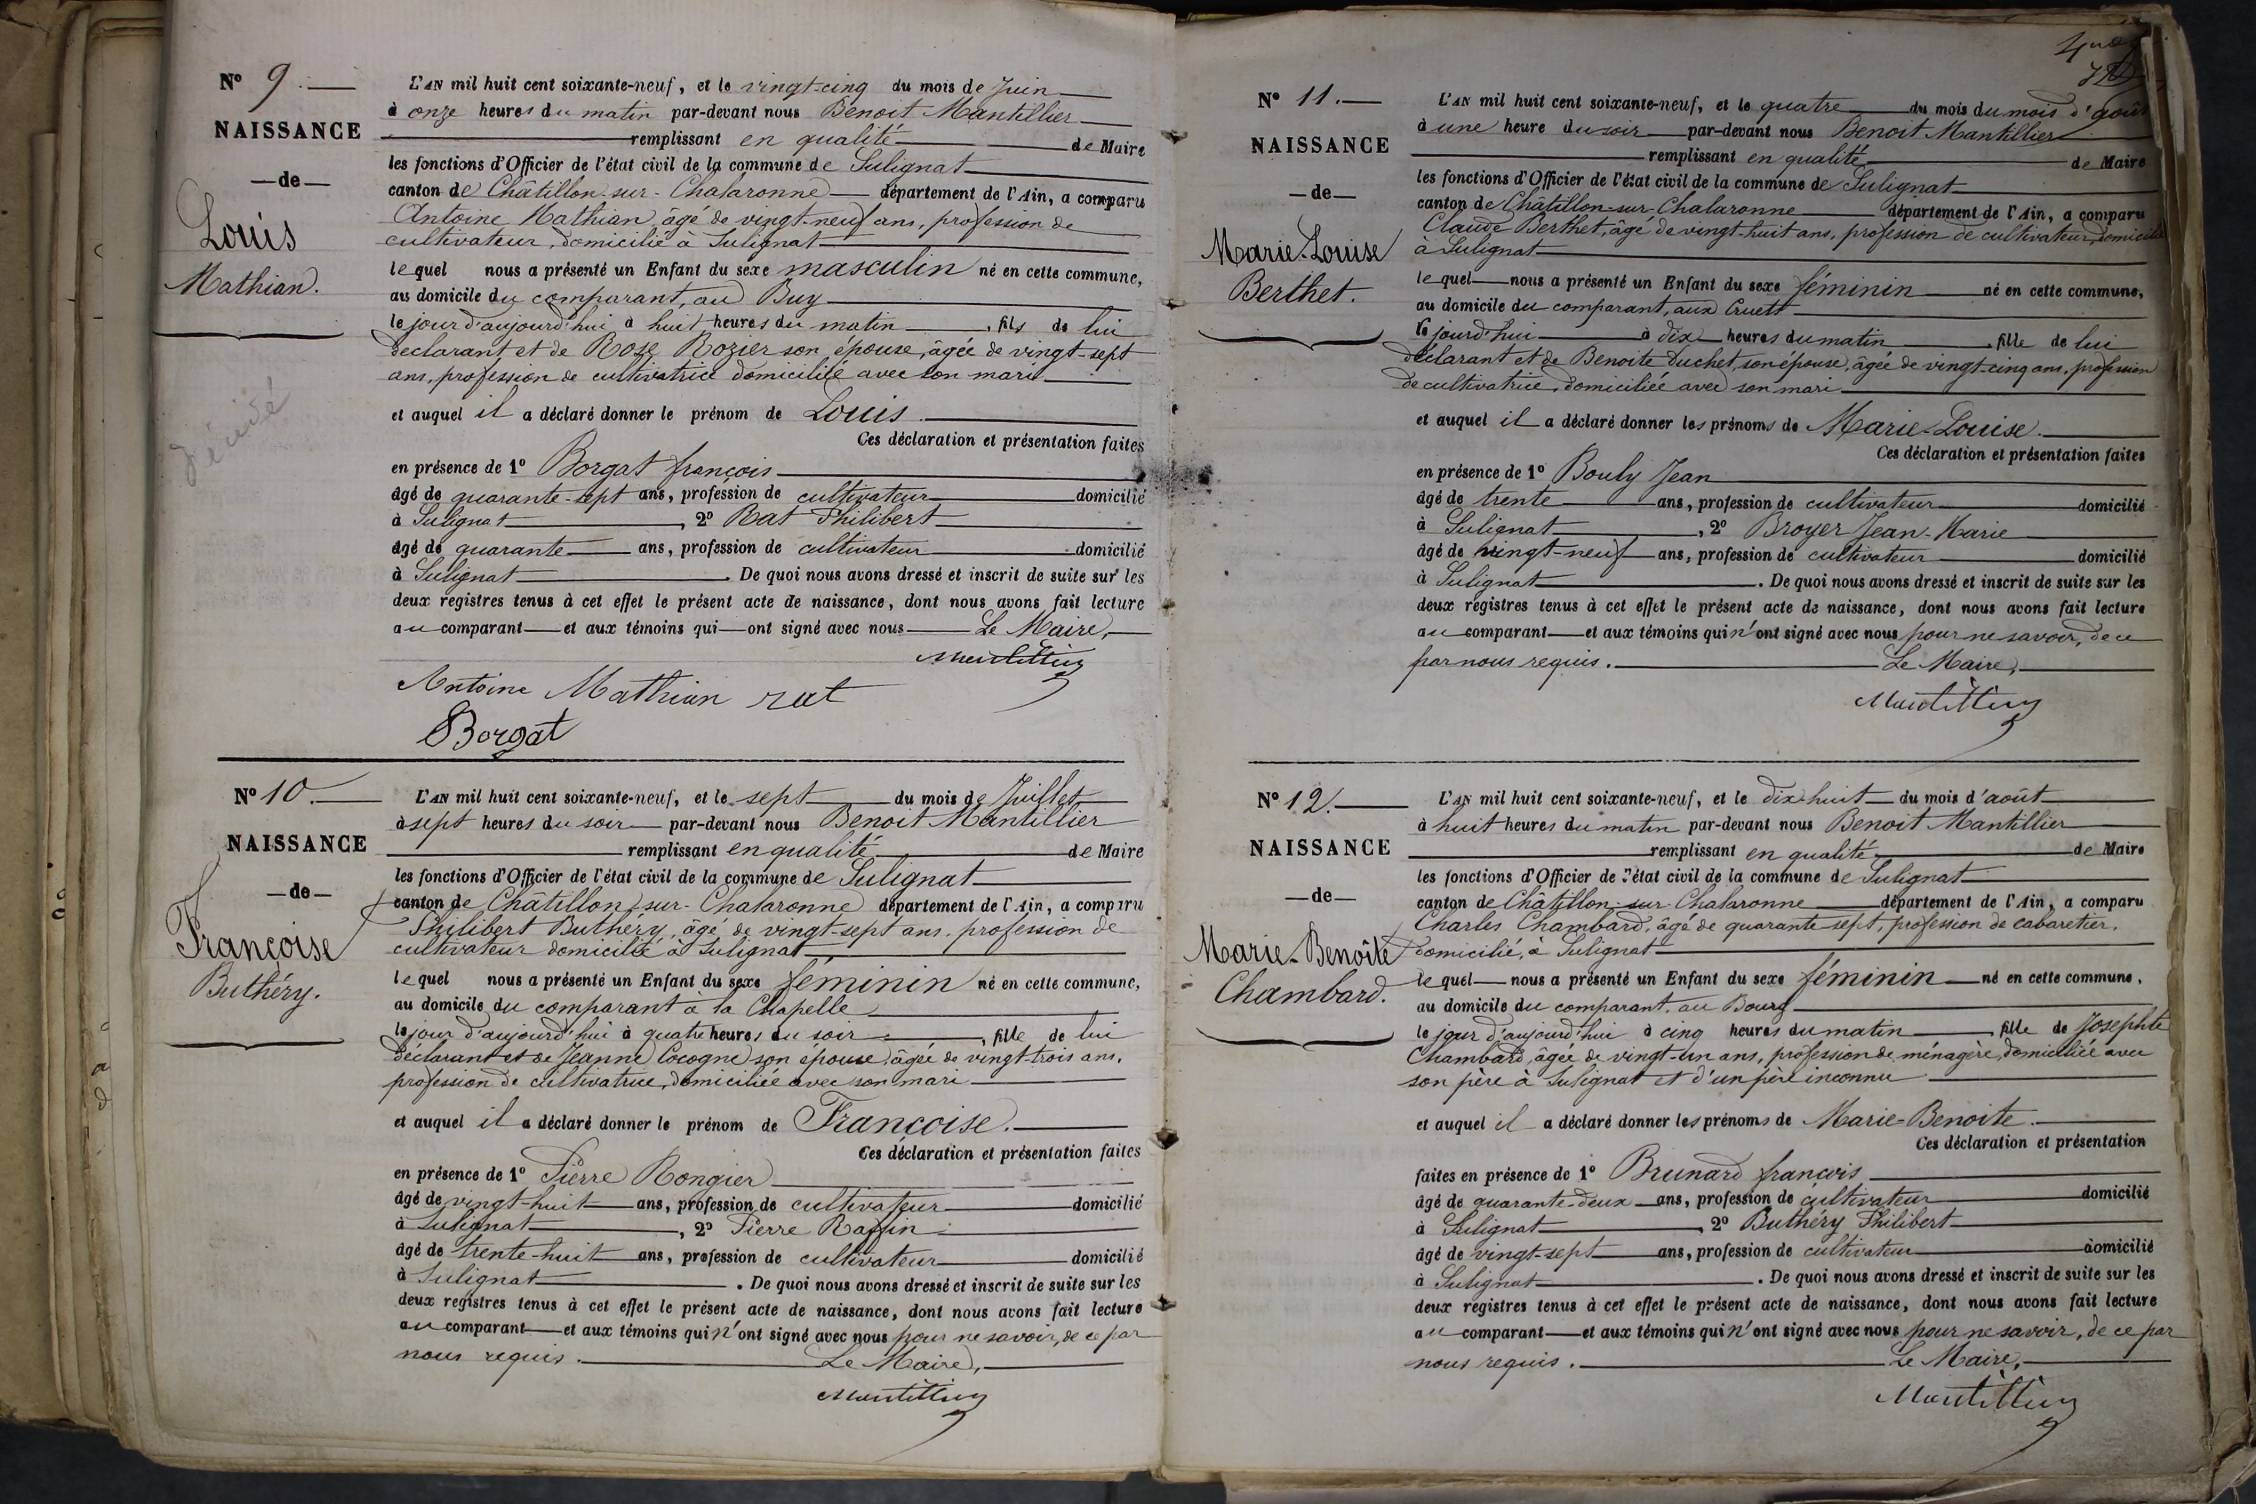 N° 9.
NAISSANCE
—de—
Louis
Mathian.
L'AN mil huit cent soixante-neuf, et le vingt-cinq du mois de Juin
à onze heures du matin par-devant nous Benoit Mantillier
remplissant en qualité de Maire
les fonctions d'Officier de l'état civil de la commune de Sulignat
canton de Châtillon-sur-Chalaronne département de l'Ain, a comparu
Antoine Mathian, âgé de vingt-neuf ans, profession de
cultivateur, domicilié à Sulignat
lequel nous a présenté un Enfant du sexe masculin né en cette commune,
au domicile du comparant, au Buy
le jour d'aujourd'hui à huit heures du matin, fils de lui
déclarant et de Rose Rozier son épouse, âgée de vingt-sept
ans, profession de cultivatrice domiciliée avec son mari
et auquel il a déclaré donner le prénom de Louis
Ces déclaration et présentation faites
en présence de 1° Borgat françois
âgé de quarante-sept ans, profession de cultivateur domicilié
à Sulignat, 2° Rat Philibert
âgé de quarante ans, profession de cultivateur domicilié
à Sulignat. De quoi nous avons dressé et inscrit de suite sur les
deux registres tenus à cet effet le présent acte de naissance, dont nous avons fait lecture
au comparant et aux témoins qui ont signé avec nous Le Maire,
Mantillier
Antoine Mathian rat
Borgat
N° 10.
NAISSANCE
—de—
Françoise
Buthéry.
L'AN mil huit cent soixante-neuf, et le sept du mois de Juillet
à sept heures du soir par-devant nous Benoit Mantillier
remplissant en qualité de Maire
les fonctions d'Officier de l'état civil de la commune de Sulignat
canton de Châtillon-sur-Chalaronne département de l'Ain, a comparu
Philibert Buthéry, âgé de vingt-sept ans, profession de
cultivateur domicilié à Sulignat
lequel nous a présenté un Enfant du sexe féminin né en cette commune,
au domicile du comparant à la Chapelle
le jour d'aujourd'hui à quatre heures du soir, fille de lui
déclarant et de Jeanne Cocogne son épouse, âgée de vingt-trois ans,
profession de cultivatrice, domiciliée avec son mari
et auquel il a déclaré donner le prénom de Françoise.
Ces déclaration et présentation faites
en présence de 1° Pierre Rongier
âgé de vingt-huit ans, profession de cultivateur domicilié
à Sulignat, 2° Pierre Raffin
âgé de trente-huit ans, profession de cultivateur domicilié
à Sulignat. De quoi nous avons dressé et inscrit de suite sur les
deux registres tenus à cet effet le présent acte de naissance, dont nous avons fait lecture
au comparant et aux témoins qui n'ont signé avec nous pour ne savoir, de ce par
nous requis. Le Maire,
Mantillier
N° 11.
NAISSANCE
—de—
Marie-Louise
Berthet.
L'AN mil huit cent soixante-neuf, et le quatre du mois du mois d'août
à une heure du soir par-devant nous Benoit Mantillier
remplissant en qualité de Maire
les fonctions d'Officier de l'état civil de la commune de Sulignat
canton de Châtillon-sur-Chalaronne département de l'Ain, a comparu
Claude Berthet, âgé de vingt-huit ans, profession de cultivateur, domicilié
à Sulignat
lequel nous a présenté un Enfant du sexe féminin né en cette commune,
au domicile du comparant, aux Cruett
le jourd'hui à dix heures du matin, fille de lui
déclarant et de Benoite Duchet, son épouse, âgée de vingt-cinq ans, profession
de cultivatrice, domiciliée avec son mari
et auquel il a déclaré donner les prénoms de Marie-Louise.
Ces déclaration et présentation faites
en présence de 1° Bouly Jean
âgé de trente ans, profession de cultivateur domicilié
à Sulignat, 2° Broyer Jean-Marie
âgé de vingt-neuf ans, profession de cultivateur domicilié
à Sulignat. De quoi nous avons dressé et inscrit de suite sur les
deux registres tenus à cet effet le présent acte de naissance, dont nous avons fait lecture
au comparant et aux témoins qui n'ont signé avec nous pour ne savoir, de ce
par nous requis. Le Maire,
Mantillier
N° 12.
NAISSANCE
—de—
Marie-Benoîte
Chambard.
L'AN mil huit cent soixante-neuf, et le dix-huit du mois d'août
à huit heures du matin par-devant nous Benoit Mantillier
remplissant en qualité de Maire
les fonctions d'Officier de l'état civil de la commune de Sulignat
canton de Châtillon-sur-Chalaronne département de l'Ain, a comparu
Charles Chambard, âgé de quarante sept, profession de cabaretier,
domicilié, à Sulignat
lequel nous a présenté un Enfant du sexe féminin né en cette commune,
au domicile du comparant, au Bourg
le jour d'aujourd'hui à cinq heures du matin, fille de Josephte
Chambard, âgée de vingt-un ans, profession de ménagère, domiciliée avec
son père à Sulignat et d'un père inconnu
et auquel il a déclaré donner les prénoms de Marie-Benoite.
Ces déclaration et présentation
faites en présence de 1° Brunard françois
âgé de quarante-deux ans, profession de cultivateur domicilié
à Sulignat, 2° Buthéry Philibert
âgé de vingt-sept ans, profession de cultivateur domicilié
à Sulignat. De quoi nous avons dressé et inscrit de suite sur les
deux registres tenus à cet effet le présent acte de naissance, dont nous avons fait lecture
au comparant et aux témoins qui n'ont signé avec nous pour ne savoir, de ce par
nous requis. Le Maire,
Mantillier